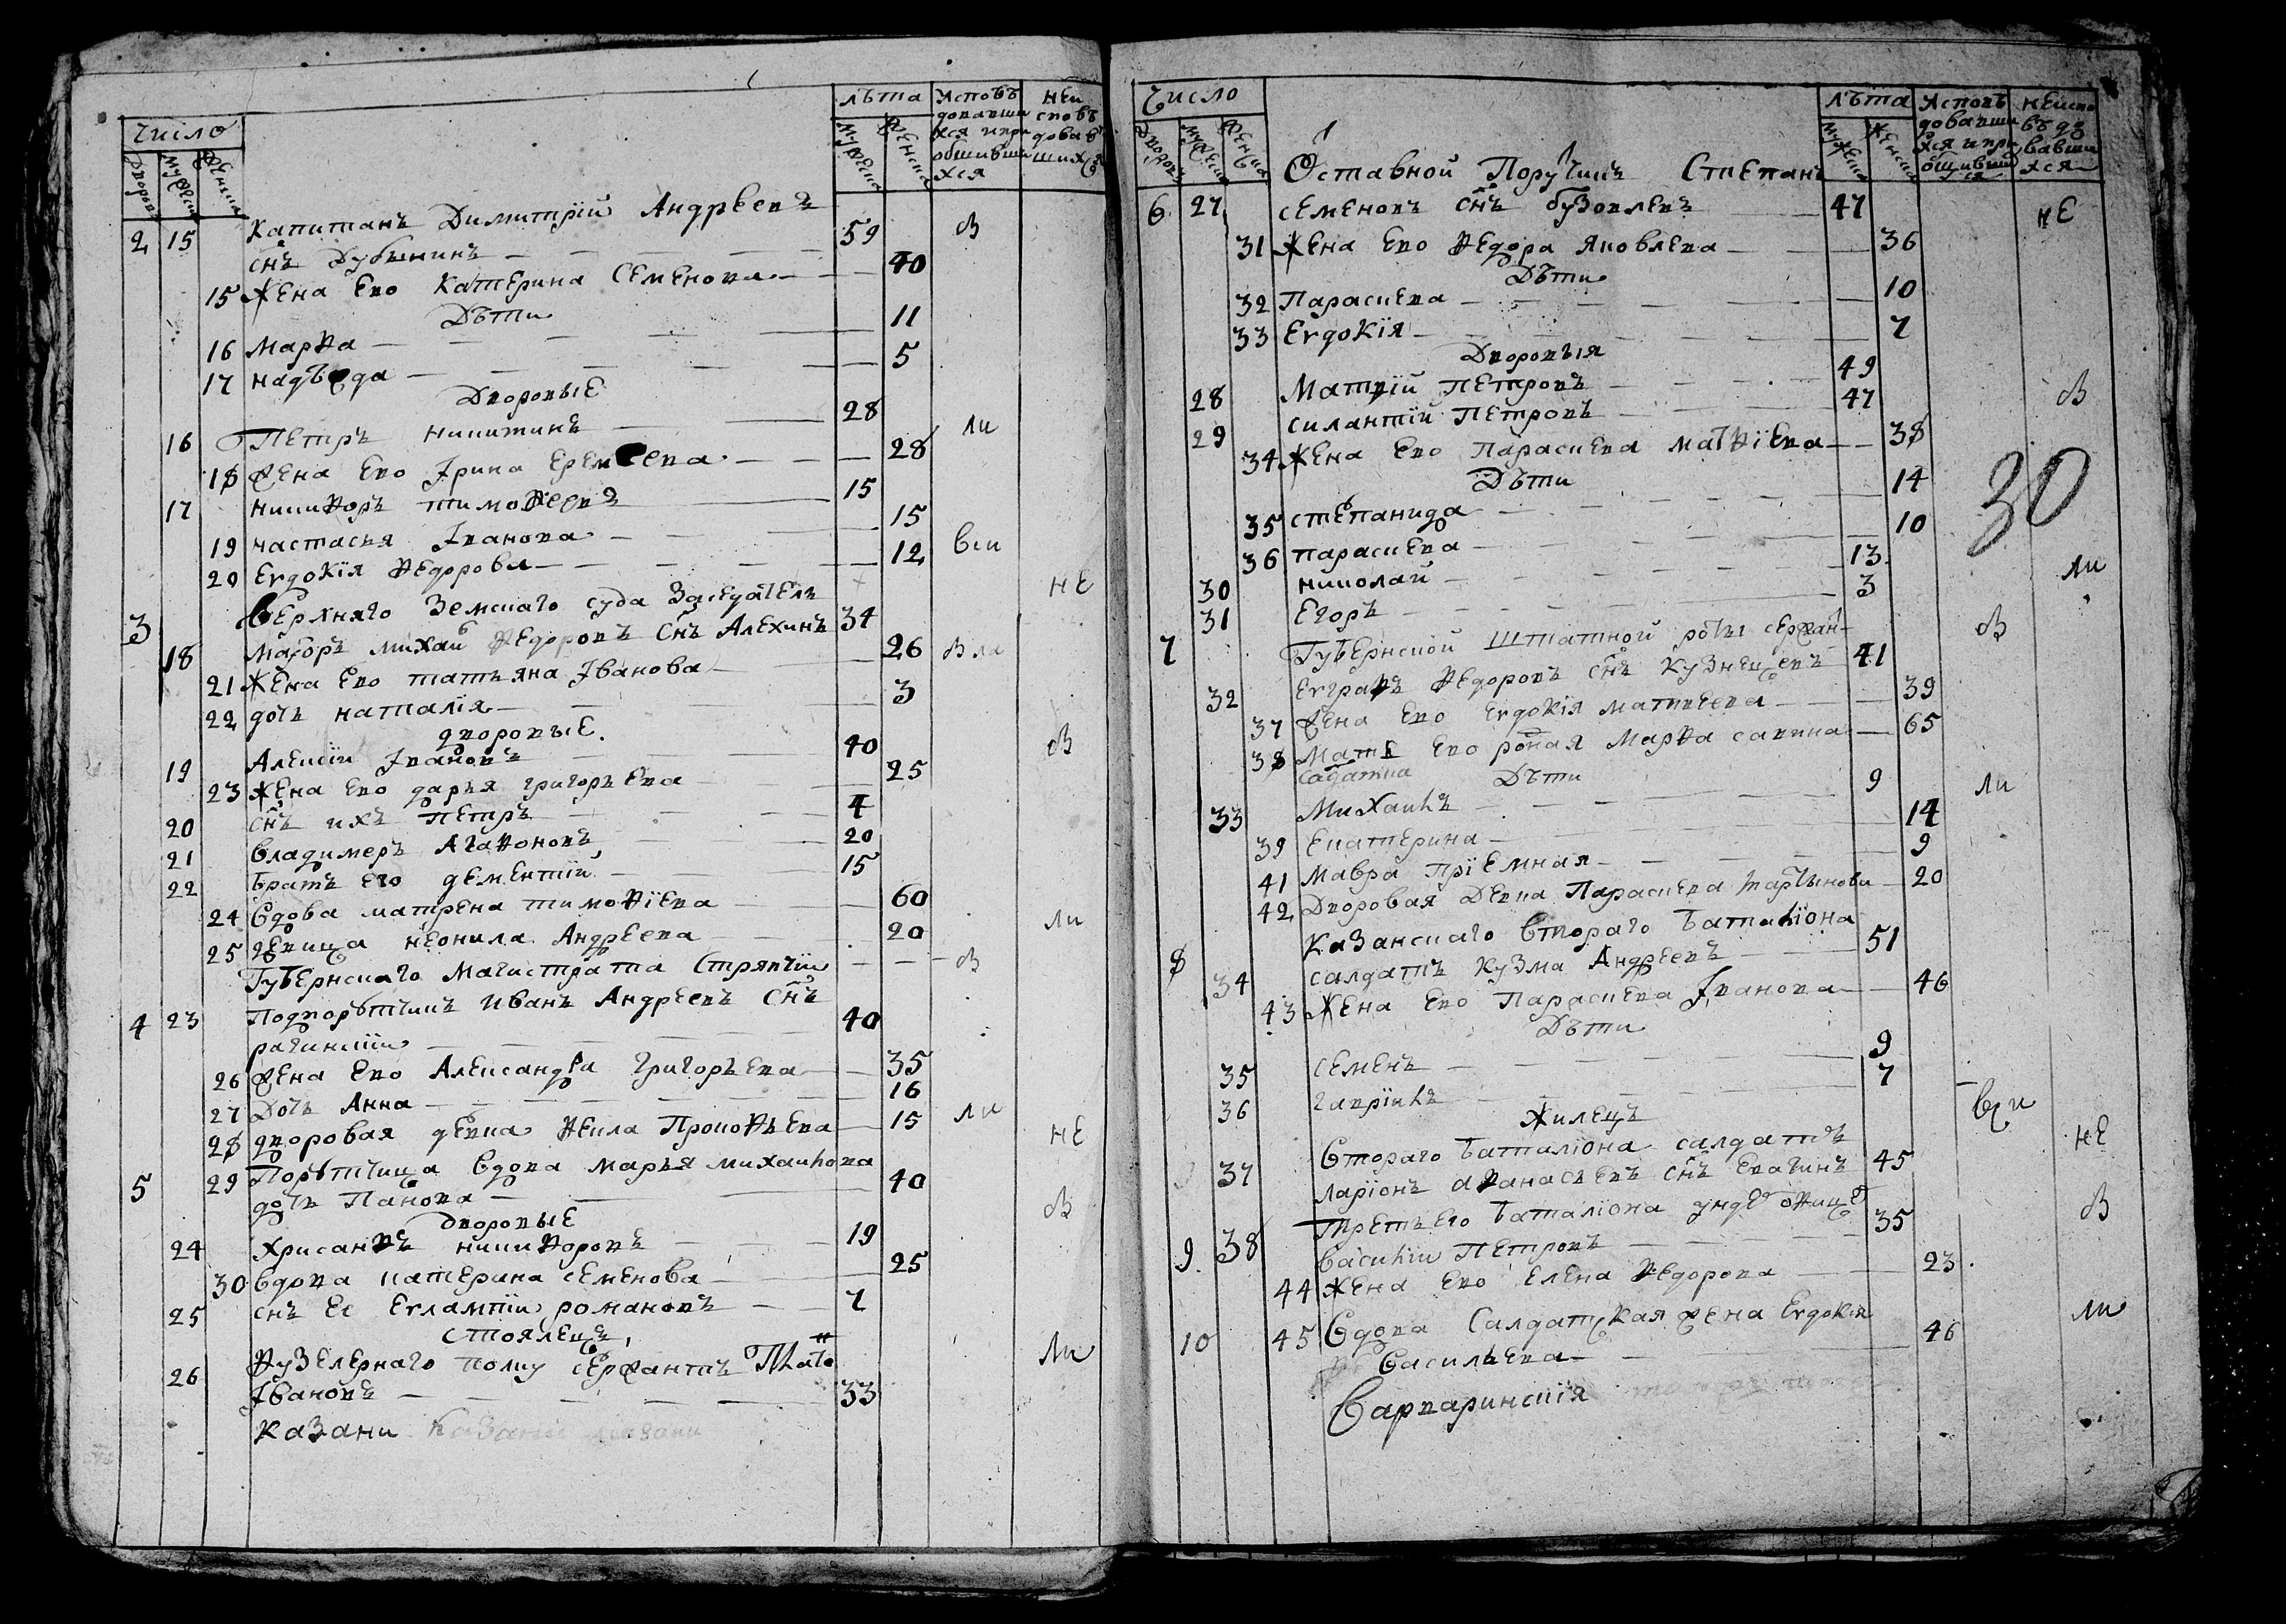 Число
Дворовъ Мужеска Женска
лѣта
Мужеска Женска
Исповѣ
довавши
хся и при
общивши
хся
неи
сповѣ
довав
шихся
2 15 Капитанъ Димитрїй Андрѣевъ
снъ Дубынинъ 59 в
15 Жена Ево Катерина Семенова 40
Дѣти
16 Марѳа 11
17 надѣжда 5
Дворовые
16 Петръ никитинъ 28 ли
18 жена Ево Ірина Еремѣева 28
17 никиѳоръ тимоѳеевъ 15
19 настасья Іванова 15
20 Евдокїя ѳедорова 12 вси
Верхняго Земскаго суда Заседатель не
3 18 маіоръ михаи ѳедоровъ снъ Алехинъ 34
21 Жена Ево татьяна Іванова 26
22 дочь наталїя 3
дворовые
19 Алексїй Івановъ 40 в
23 жена Ево дарья григорьева 25
20 снъ ихъ Петръ 4
21 владимеръ Агаѳоновъ 20
22 братъ Его дементїй 15
24 Вдова матрена тимоѳїева 60 ли
25 девица неонила Андреева 20
Губернскаго Магистрата Стряпчїи в
4 23 Подпорѣтчикъ Иванъ Андреевъ снъ
рагинскїи 40
26 жена Ево Александра григорьева 35
27 Дочь Анна 16
28 дворовая девка ѳекла Прокоѳьева 15 ли
5 29 Порѣтчица Вдова марья михаилова не
дочь Панова 40
Дворовые в
24 Хрисанѳъ никиѳоровъ 19
30 вдова катерина семенова 25
25 снъ Ее Евлампїи романовъ 7
стоялецъ
26 ѳузелернаго полку сержантъ Плато
Івановъ 33 ли
Казани
Число
Дворовъ Мужеска Женска
лѣта
Мужеска Женска
Исповѣ
довавши
хся и при
общивши
ся
неиспо
вѣдо
вавши
хся
Оставной Поручикъ Степанъ
6 27 семеновъ снъ бузовлевъ 47 не
31 Жена Ево ѳедора Яковлева 36
Дѣти
32 Параскева 10
33 Евдокїя 7
Дворовыя
28 Матвїй Петровъ 49 в
29 силантїй Петровъ 47
34 Жена Ево Параскева матѳїева 38
Дѣти
30
35 степанида 14
36 параскева 10
30 николай 13 ли
31 Егоръ 3
7 Губернской Штатной роты сержан в
32 Евграѳъ ѳедоровъ снъ кузнецевъ 41
37 жена Ево Евдокїя матвеева 39
38 мать Ево родная Марѳа савина 65
Дѣти
33 Михаилъ 9 ли
39 Екатерина 14
41 мавра Прїемная 9
42 Дворовая Девка Параскева мартынова 20
Казанскаго втораго баталїона
8 34 салдатъ кузма Андреевъ 51
43 Жена Ево Параскева Іванова 46
Дѣти
35 семенъ 9
36 гаврїилъ 7
Жилецъ вси
Втораго баталїона салдатъ не
37 ларїонъ аѳанасьевъ снъ Елагинъ 45
Третьего баталїона ундеръ оѳице в
9 38 василїи Петровъ 35
44 Жена Ево Елена ѳедорова 23
10 45 Вдова Салдатская жена Евдокїя ли
Васильева 46
Варваринскїя